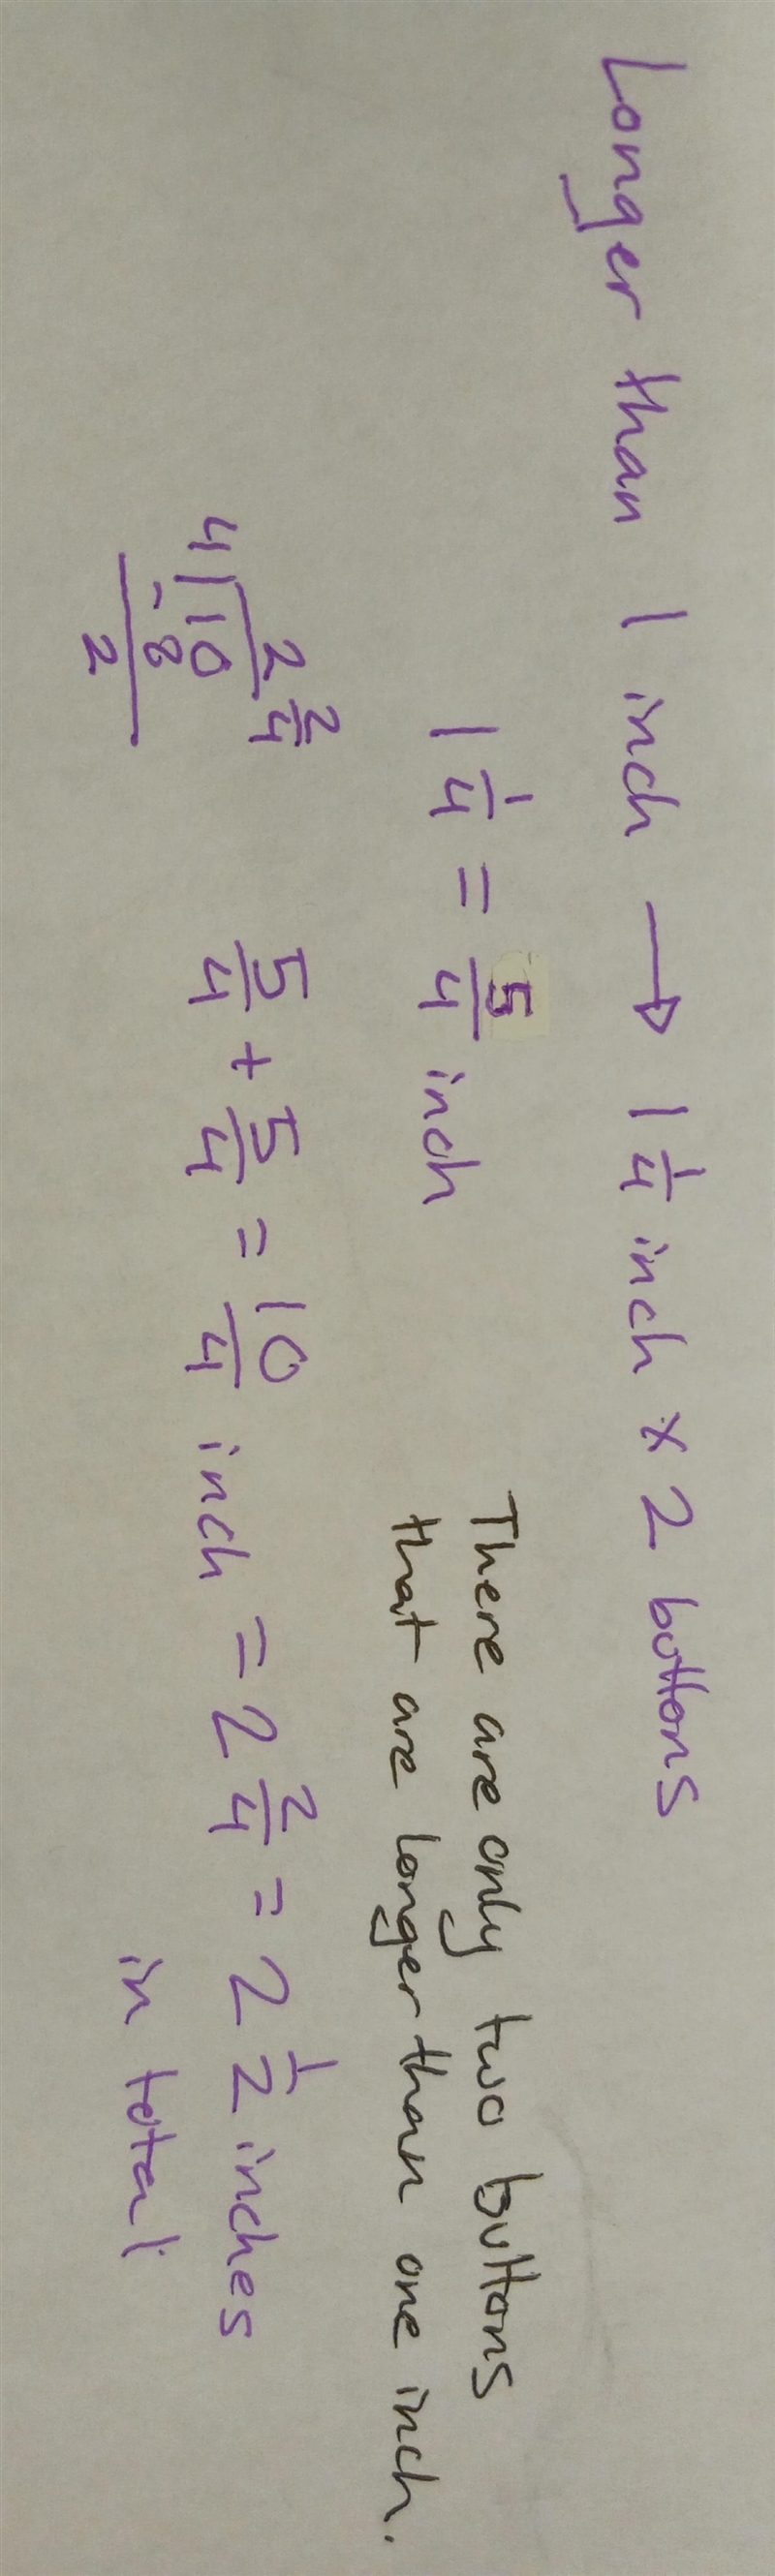 Longer than 1 inch → 1 1/4 inch x 2 buttons
1 1/4 = 5/4 inch
There are only two buttons
that are longer than one inch.
5/4 + 5/4 = 10/4 inch = 2 2/4 = 2 1/2 inches
in total
2 2/4
4 10
-8
2